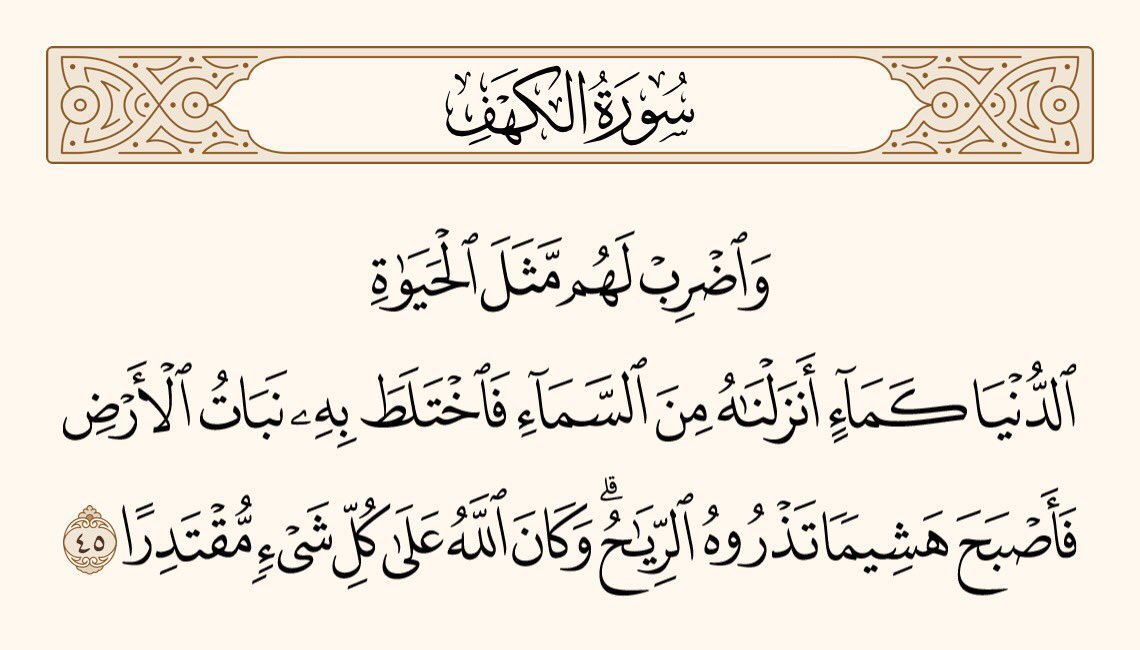 سُورَةُ الكَهۡفِ
وَٱضۡرِبۡ لَهُم مَّثَلَ ٱلۡحَيَوٰةِ
ٱلدُّنۡيَا كَمَآءٍ أَنزَلۡنَٰهُ مِنَ ٱلسَّمَآءِ فَٱخۡتَلَطَ بِهِۦ نَبَاتُ ٱلۡأَرۡضِ
فَأَصۡبَحَ هَشِيمٗا تَذۡرُوهُ ٱلرِّيَٰحُۗ وَكَانَ ٱللَّهُ عَلَىٰ كُلِّ شَيۡءٖ مُّقۡتَدِرًا ٤٥